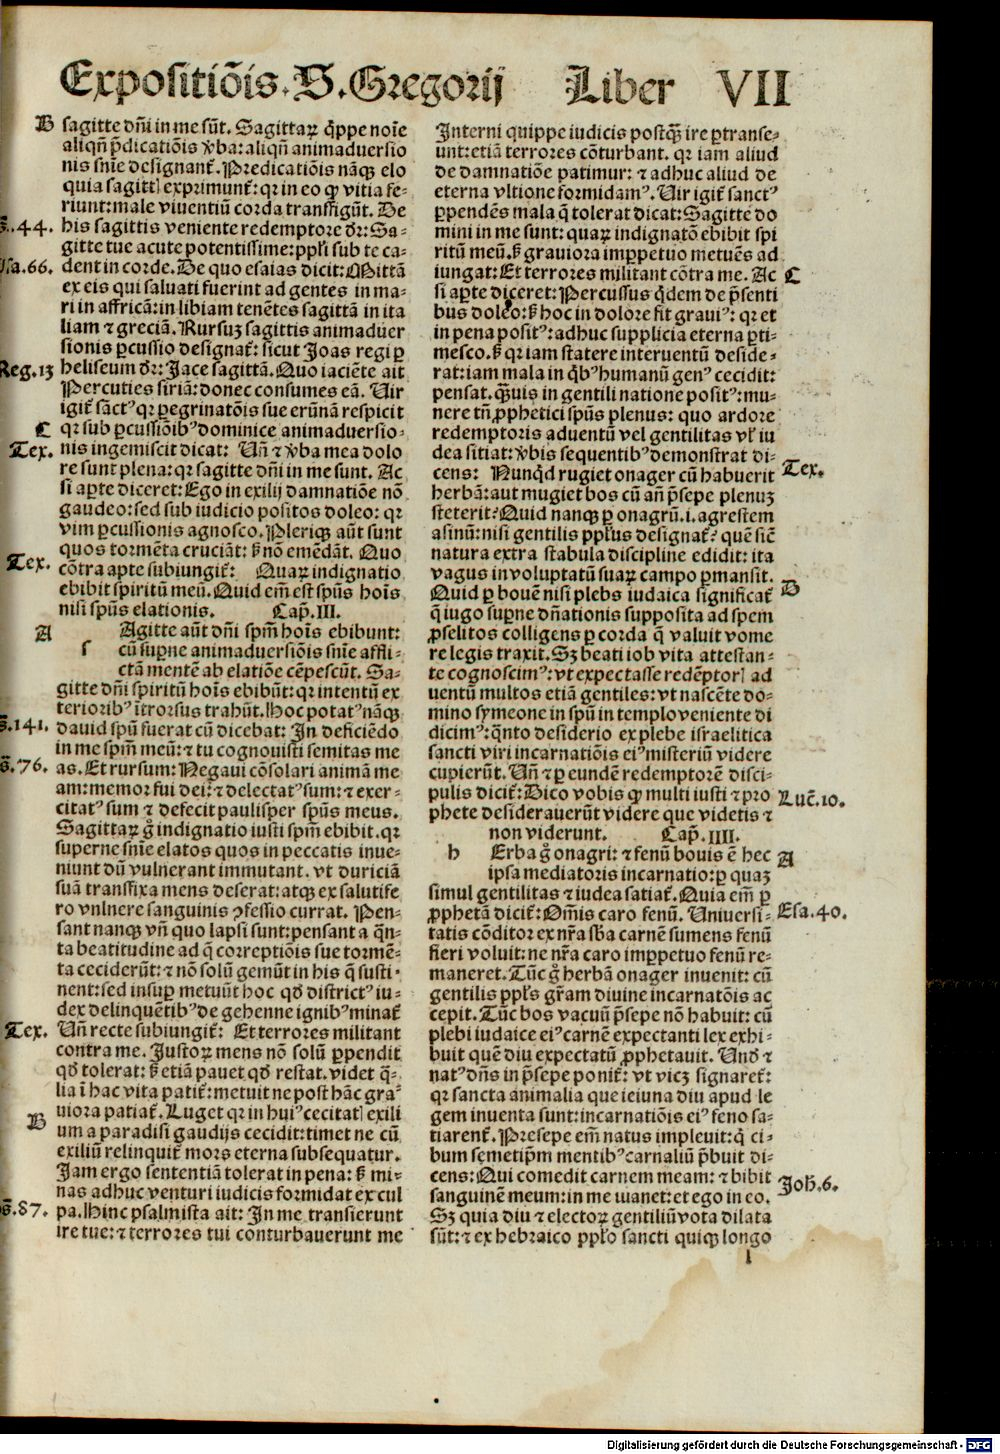 Expositiõis. D. Gregorij Liber VII
B
sagitte dñi in me sũt. Sagittaꝝ q̃ppe noĩe
aliqñ p̃dicatiõis v̾ba: aliqñ animaduersio
nis snĩe designant᷑. Predicatiõis nãqꝫ elo
quia sagittꝭ exprimunt᷑: qꝛ in eo ꝙ vitia fe⸗
riunt: male viuentiũ corda transfigũt. De
Ps. 44.
his sagittis veniente redemptore dr̃: Sa⸗
gitte tue acute potentissime: ppl̃i sub te ca⸗
Isa. 66.
dent in corde. De quo esaias dicit: Mittã
ex eis qui saluati fuerint ad gentes in ma⸗
ri in affricã: in libiam tenẽtes sagittã in ita
liam ⁊ greciã. Rursuꝫ sagittis animaduer
sionis ꝑcussio designat᷑: sicut Joas regi ꝑ
Reg. 13
heliseum dr̃: Jace sagittã. Quo iaciẽte ait
Percuties siriã: donec consumes eã. Uir
igit᷑ sctꝰ qꝛ ꝑegrinatõis sue erũnã respicit
C
qꝛ sub ꝑcussiõibꝰ dominice animaduersio⸗
Tex.
nis ingemiscit dicat: Uñ ⁊ v̾ba mea dolo
re sunt plena: qꝛ sagitte dñi in me sunt. Ac
si aꝑte diceret: Ego in exilij damnatiõe nõ
gaudeo: sed sub iudicio positos doleo: qꝛ
vim ꝑcussionis agnosco. Pleriqꝫ aũt sunt
quos tormẽta cruciãt: sꝫ nõ emẽdãt. Quo
Tex.
cõtra apte subiungit᷑: Quaꝝ indignatio
ebibit spiritũ meũ. Quid em̃ est spũs hoĩs
nisi spũs elationis. Cap̃. III.
A
s Agitte aũt dñi spm̃ hoĩs ebibunt:
cũ suꝑne animaduersiõis snĩe affli⸗
ctã mentẽ ab elatiõe cõpescũt. Sa⸗
gitte dñi spiritũ hoĩs ebibũt: qꝛ intentũ ex
terioribꝰ ĩtrorsus trahũt. Hoc potatꝰ nãqꝫ
Ps. 141.
dauid spũ fuerat cũ dicebat: In deficiẽdo
in me spm̃ meũ: ⁊ tu cognouisti semitas me
Ps. 76.
as. Et rursum: Negaui cõsolari animã me
am: memor fui dei: ⁊ delectatꝰ sum: ⁊ exer⸗
citatꝰ sum ⁊ defecit paulisper spũs meus.
Sagittaꝝ g̃ indignatio iusti spm̃ ebibit. qꝛ
superne snĩe elatos quos in peccatis inue⸗
niunt dũ vulnerant immutant. vt duriciã
suã transfixa mens deserat: atqꝫ ex salutife
ro vulnere sanguinis ꝯfessio currat. Pen⸗
sant nanqꝫ vñ quo lapsi sunt: pensant a q̃n⸗
ta beatitudine ad q̃ correptiõis sue tormẽ⸗
ta ceciderũt: ⁊ nõ solũ gemũt in his q̃ susti⸗
nent: sed insuꝑ metuũt hoc qd̃ districtꝰ iu⸗
dex delinquẽtibꝰ de gehenne ignibꝰ minat᷑
Tex.
Uñ recte subiungit᷑: Et terrores militant
contra me. Justoꝝ mens nõ solũ ꝑpendit
qd̃ tolerat: sꝫ etiã pauet qd̃ restat. videt q̃⸗
lia ĩ hac vita patit᷑: metuit ne post hãc gra⸗
B
uiora patiat᷑. Luget qꝛ in huiꝰ cecitatꝭ exili
um a paradisi gaudijs cecidit: timet ne cũ
exiliũ relinquit᷑ mors eterna subsequatur.
Jam ergo sententiã tolerat in pena: sꝫ mi⸗
nas adhuc venturi iudicis formidat ex cul
Ps. 87.
pa. Hinc psalmista ait: In me transierunt
ire tue: ⁊ terrores tui conturbauerunt me
Interni quippe iudicis postqꝫ̃ ire ꝑtranse⸗
unt: etiã terrores cõturbant. qꝛ iam aliud
de damnatiõe patimur: ⁊ adhuc aliud de
eterna vltione formidamꝰ. Uir igit᷑ sanctꝰ
ꝑpendẽs mala q̃ tolerat dicat: Sagitte do
mini in me sunt: quaꝝ indignatõ ebibit spi
ritũ meũ. sꝫ grauiora imꝑpetuo metuẽs ad
iungat: Et terrores militant cõtra me. Ac
C
si aꝑte diceret: Percussus q̃dem de p̃senti
bus doleo: sꝫ hoc in dolore fit grauiꝰ: qꝛ et
in pena positꝰ: adhuc supplicia eterna ꝑti⸗
mesco. sꝫ qꝛ iam statere interuentũ deside⸗
rat: iam mala in q̃bꝰ humanũ genꝰ cecidit:
pensat. Qꝫ̃uis in gentili natione positꝰ: mu⸗
nere tñ ꝓphetici spũs plenus: quo ardore
redemptoris aduentũ vel gentilitas vl̃ iu
dea sitiat: v̾bis sequentibꝰ demonstrat di⸗
cens: Nunq̃d rugiet onager cũ habuerit
Tex.
herbã: aut mugiet bos cũ añ p̃sepe plenuꝫ
steterit? Quid nanqꝫ ꝑ onagrũ. i. agrestem
asinũ: nisi gentilis ppl̃us designat᷑? quẽ siẽ
natura extra stabula discipline edidit: ita
vagus in voluptatũ suaꝝ campo ꝑmansit.
D
Quid ꝑ bouẽ nisi plebs iudaica significat᷑
q̃ iugo suꝑne dñationis supposita ad spem
ꝓselitos colligens ꝑ corda q̃ valuit vome
re legis traxit. Sꝫ beati iob vita attestan⸗
te cognoscimꝰ: vt expectasse redẽptorꝭ ad
uentũ multos etiã gentiles: vt nascẽte do⸗
mino symeone in spũ in templo veniente di
dicimꝰ: q̃nto desiderio ex plebe israelitica
sancti viri incarnatiõis eiꝰ misteriũ videre
cupierũt. Uñ ⁊ ꝑ eundẽ redemptorẽ disci⸗
pulis dicit᷑: Dico vobis ꝙ multi iusti ⁊ pro
Luc̃. 10.
phete desiderauerũt videre que videtis ⁊
non viderunt. Cap̃. IIII.
h Erba g̃ onagri: ⁊ fenũ bouis ẽ hec
A
ipsa mediatoris incarnatio: ꝑ quaꝫ
simul gentilitas ⁊ iudea satiat᷑. Quia em̃ ꝑ
ꝓphetã dicit᷑: Om̃is caro fenũ. Uniuersi⸗
Esa. 40.
tatis cõditor ex nr̃a sb̃a carnẽ sumens fenũ
fieri voluit: ne nr̃a caro imꝑpetuo fenũ re⸗
maneret. Tũc g̃ herbã onager inuenit: cũ
gentilis ppl̃s gr̃am diuine incarnatõis ac
cepit. Tũc bos vacuũ p̃sepe nõ habuit: cũ
plebi iudaice eiꝰ carnẽ expectanti lex exhi⸗
buit quẽ diu expectatũ ꝓphetauit. Und̃ ⁊
natꝰ dñs in p̃sepe ponit᷑: vt vicꝫ signaret᷑:
qꝛ sancta animalia que ieiuna diu apud le
gem inuenta sunt: incarnatiõis eiꝰ feno sa⸗
tiarent᷑. Presepe em̃ natus impleuit: q̃ ci⸗
bum semetip̃m mentibꝰ carnaliũ p̃buit di⸗
cens: Qui comedit carnem meam: ⁊ bibit
Joh̃. 6.
sanguinẽ meum: in me manet: et ego in eo.
Sꝫ quia diu ⁊ electoꝝ gentiliũ vota dilata
sũt: ⁊ ex hebraico ppl̃o sancti quiqꝫ longo
l
Digitalisierung gefördert durch die Deutsche Forschungsgemeinschaft - DFG